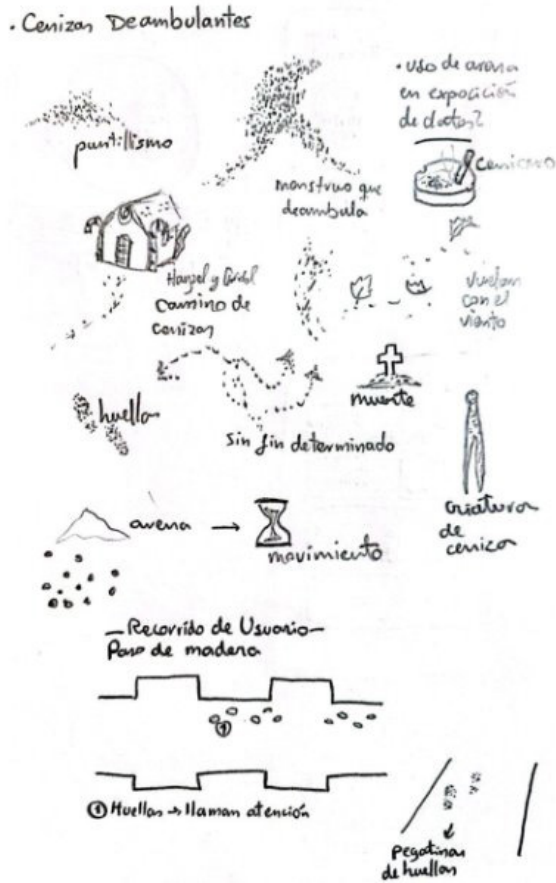 · Cenizas Deambulantes
puntillismo
monstruo que
deambula
· uso de arena
en exposición
de datos?
cenicero
Hansel y Gretel
camino de
cenizas
vuelan
con el
viento
huellas
sin fin determinado
muerte
criatura
de
ceniza
arena
movimiento
— Recorrido de Usuario —
Paso de madera
1
1 Huellas → llaman atención
pegatinas
de huellas